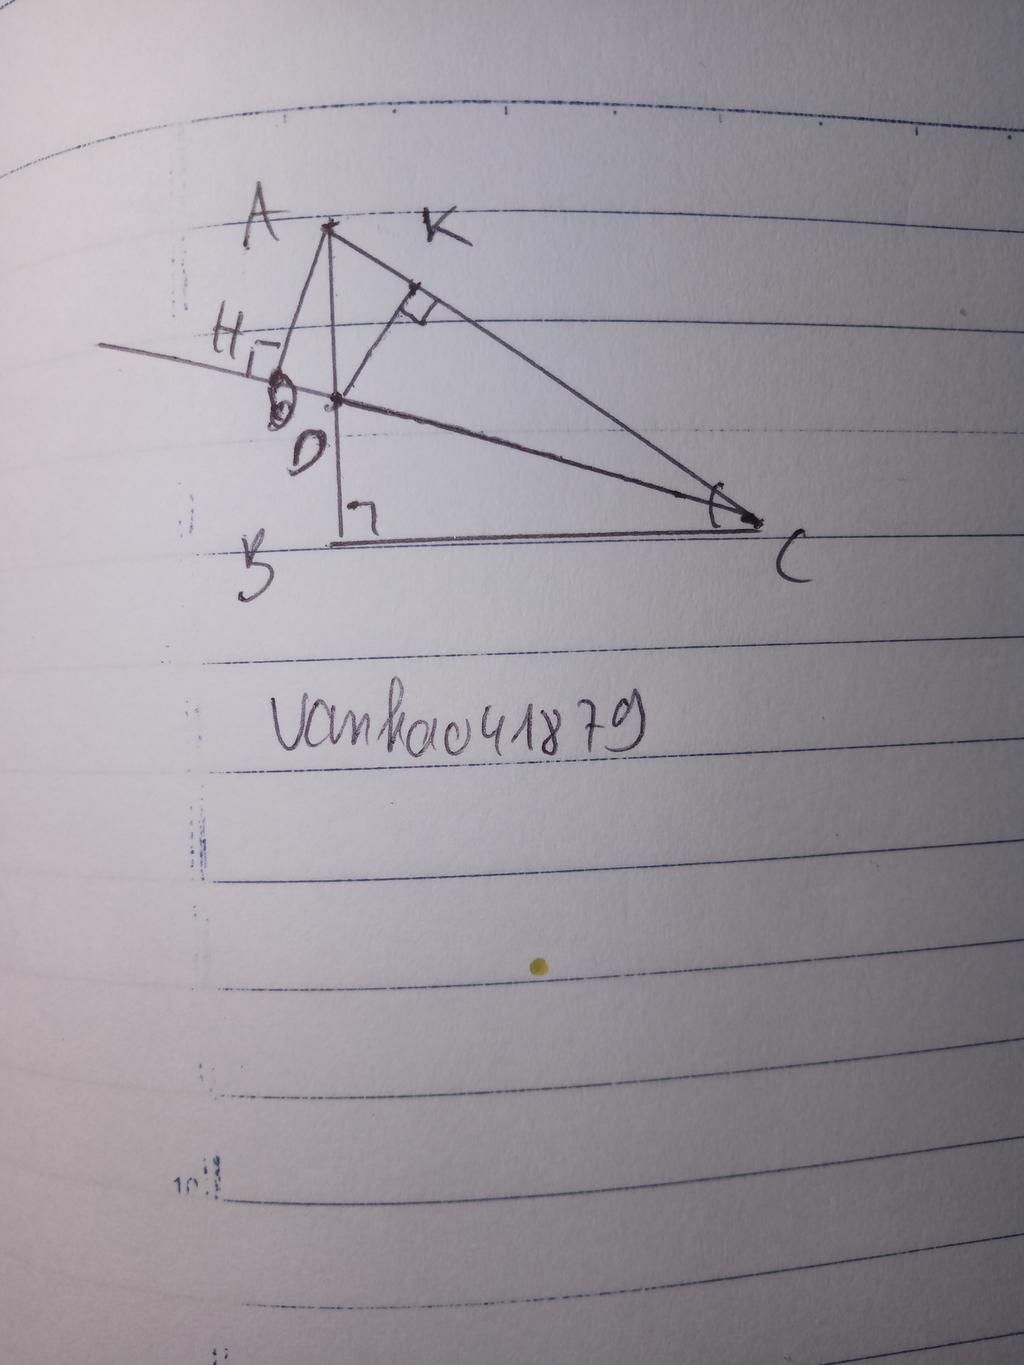 A
K
H
D
B
C
vanhao41879
15